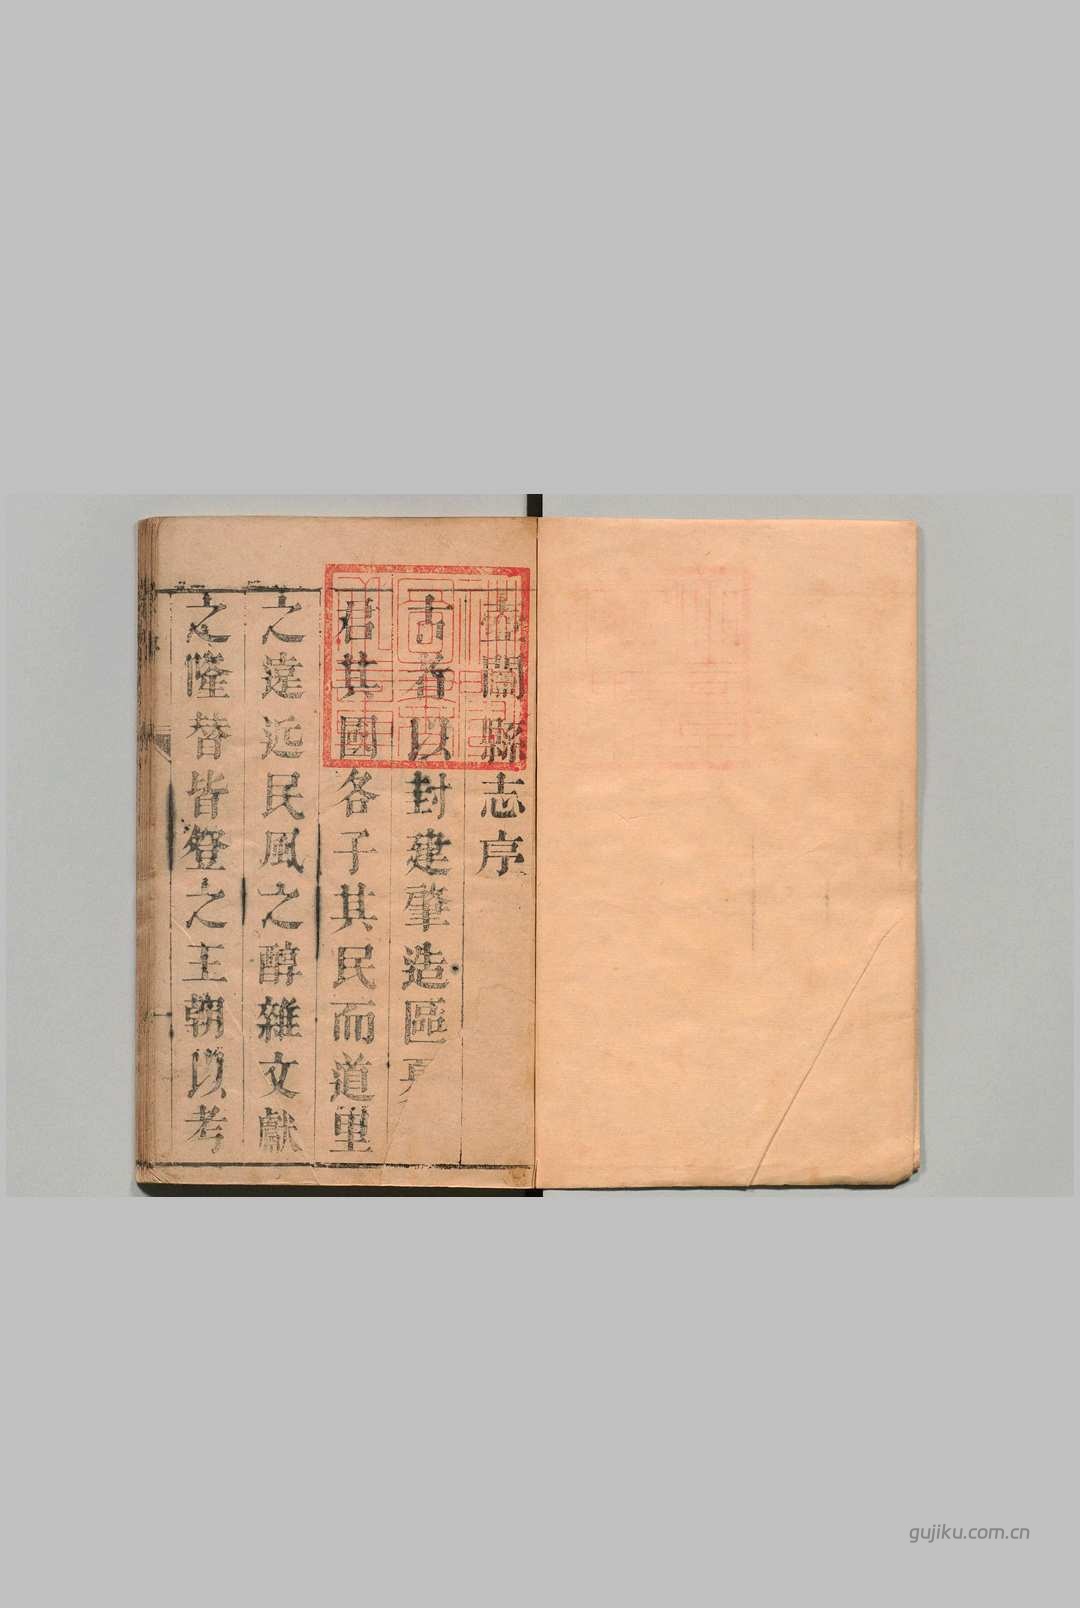 壺關縣志序
古者以封建肇造區
君其國各子其民而道里
之逹近民風之醇雜文獻
之隆替皆登之王朝以考
gujiku.com.cn